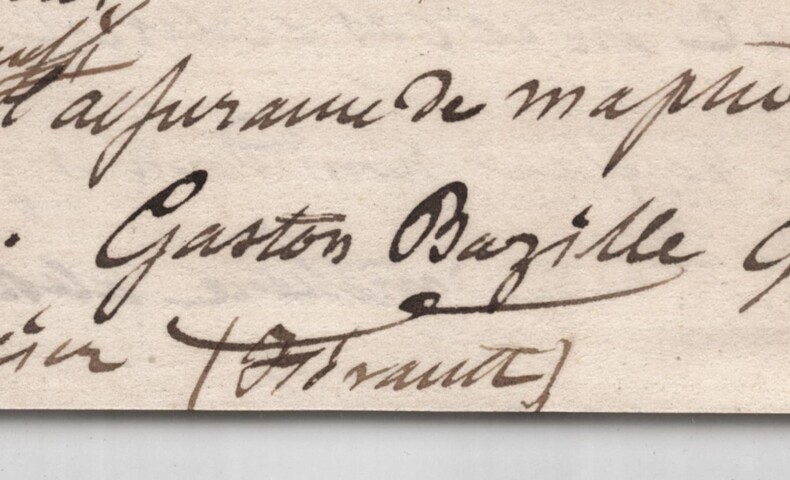 l'assurance de ma plus
Gaston Bazille
(Hérault)